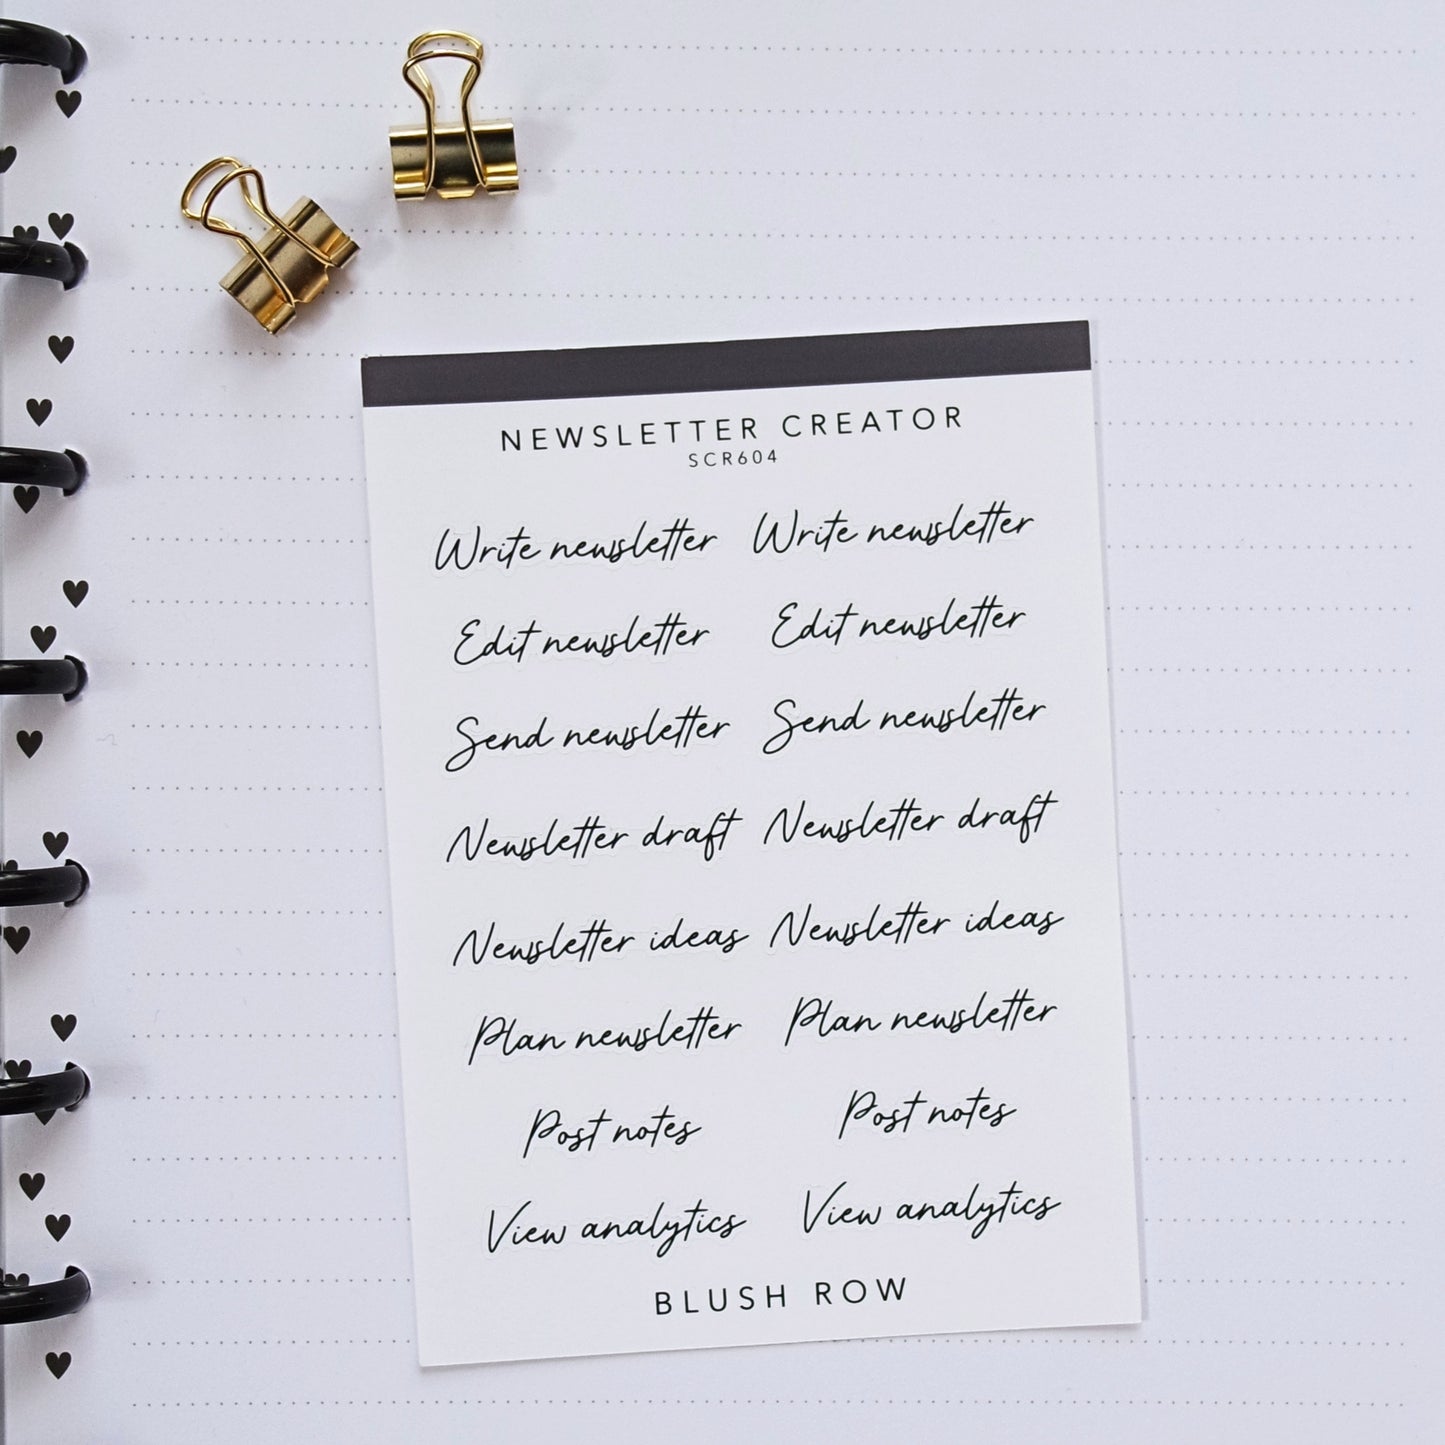 NEWSLETTER CREATOR
SCR604
Write newsletter Write newsletter
Edit newsletter Edit newsletter
Send newsletter Send newsletter
Newsletter draft Newsletter draft
Newsletter ideas Newsletter ideas
Plan newsletter Plan newsletter
Post notes Post notes
View analytics View analytics
BLUSH ROW